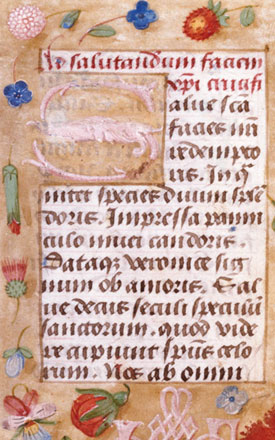 Ad salutandum faciem
xpi cruifi
Salue scã
facies nrĩ
redempto
ris. In q̃
nitet species diuini splẽ
doris. Impressa panni
culo niuei candoris.
Dataqz veronice sig
num ob amoris. Sal
ue decus seculi speculũ
sanctorum. quod vide
re cupiunt spũs celo
rum. Nos ab omni